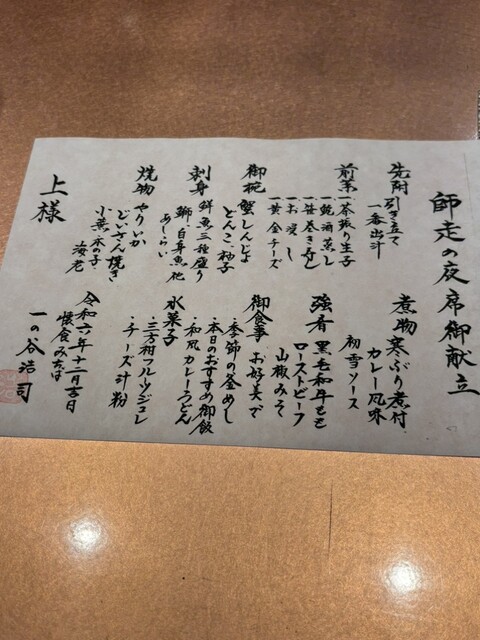 師走の夜席御献立
先附 引き立て
一番出汁
前菜 一 茶振り生子
一 鮑酒蒸し
一 笹巻き寿し
一 お浸し
一 黄金チーズ
御椀 蟹しんじょ
どんこ 柚子
刺身 鮮魚三種盛り
鰤・白身魚他
あしらい
焼物 やりいか
けいざん焼き
小蕪 木の子
海老
煮物 寒ぶり煮付
カレー風味
初雪ソース
強肴 黒毛和牛もも
ローストビーフ
山椒みそ
御食事 お好みで
・季節の釜めし
・本日のおすすめ御飯
・和風カレーうどん
水菓子
・三方柑フルーツジュレ
・チーズ汁粉
令和六年十二月吉日
懐食みちば
一の谷浩司
上様